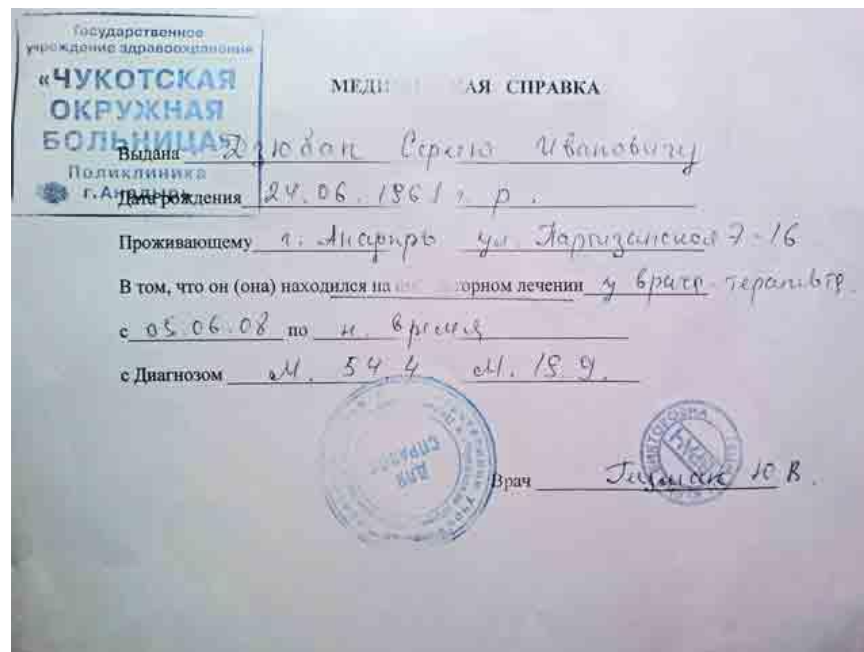 Государственное
учреждение здравоохранения
«ЧУКОТСКАЯ
ОКРУЖНАЯ
БОЛЬНИЦА»
Поликлиника
г.Анадырь
МЕДИ АЯ СПРАВКА
Выдана Дзюбан Сергею Ивановичу
Дата рождения 24.06.1961 г.р.
Проживающему г. Анадырь ул. Партизанская 7-16
В том, что он (она) находился на орном лечении у врача-терапевта
с 05.06.08 по н. время
с Диагнозом М. 54.4 М. 19.9.
ДЛЯ
СПРАВОК
Врач Ю В.
ВРАЧ